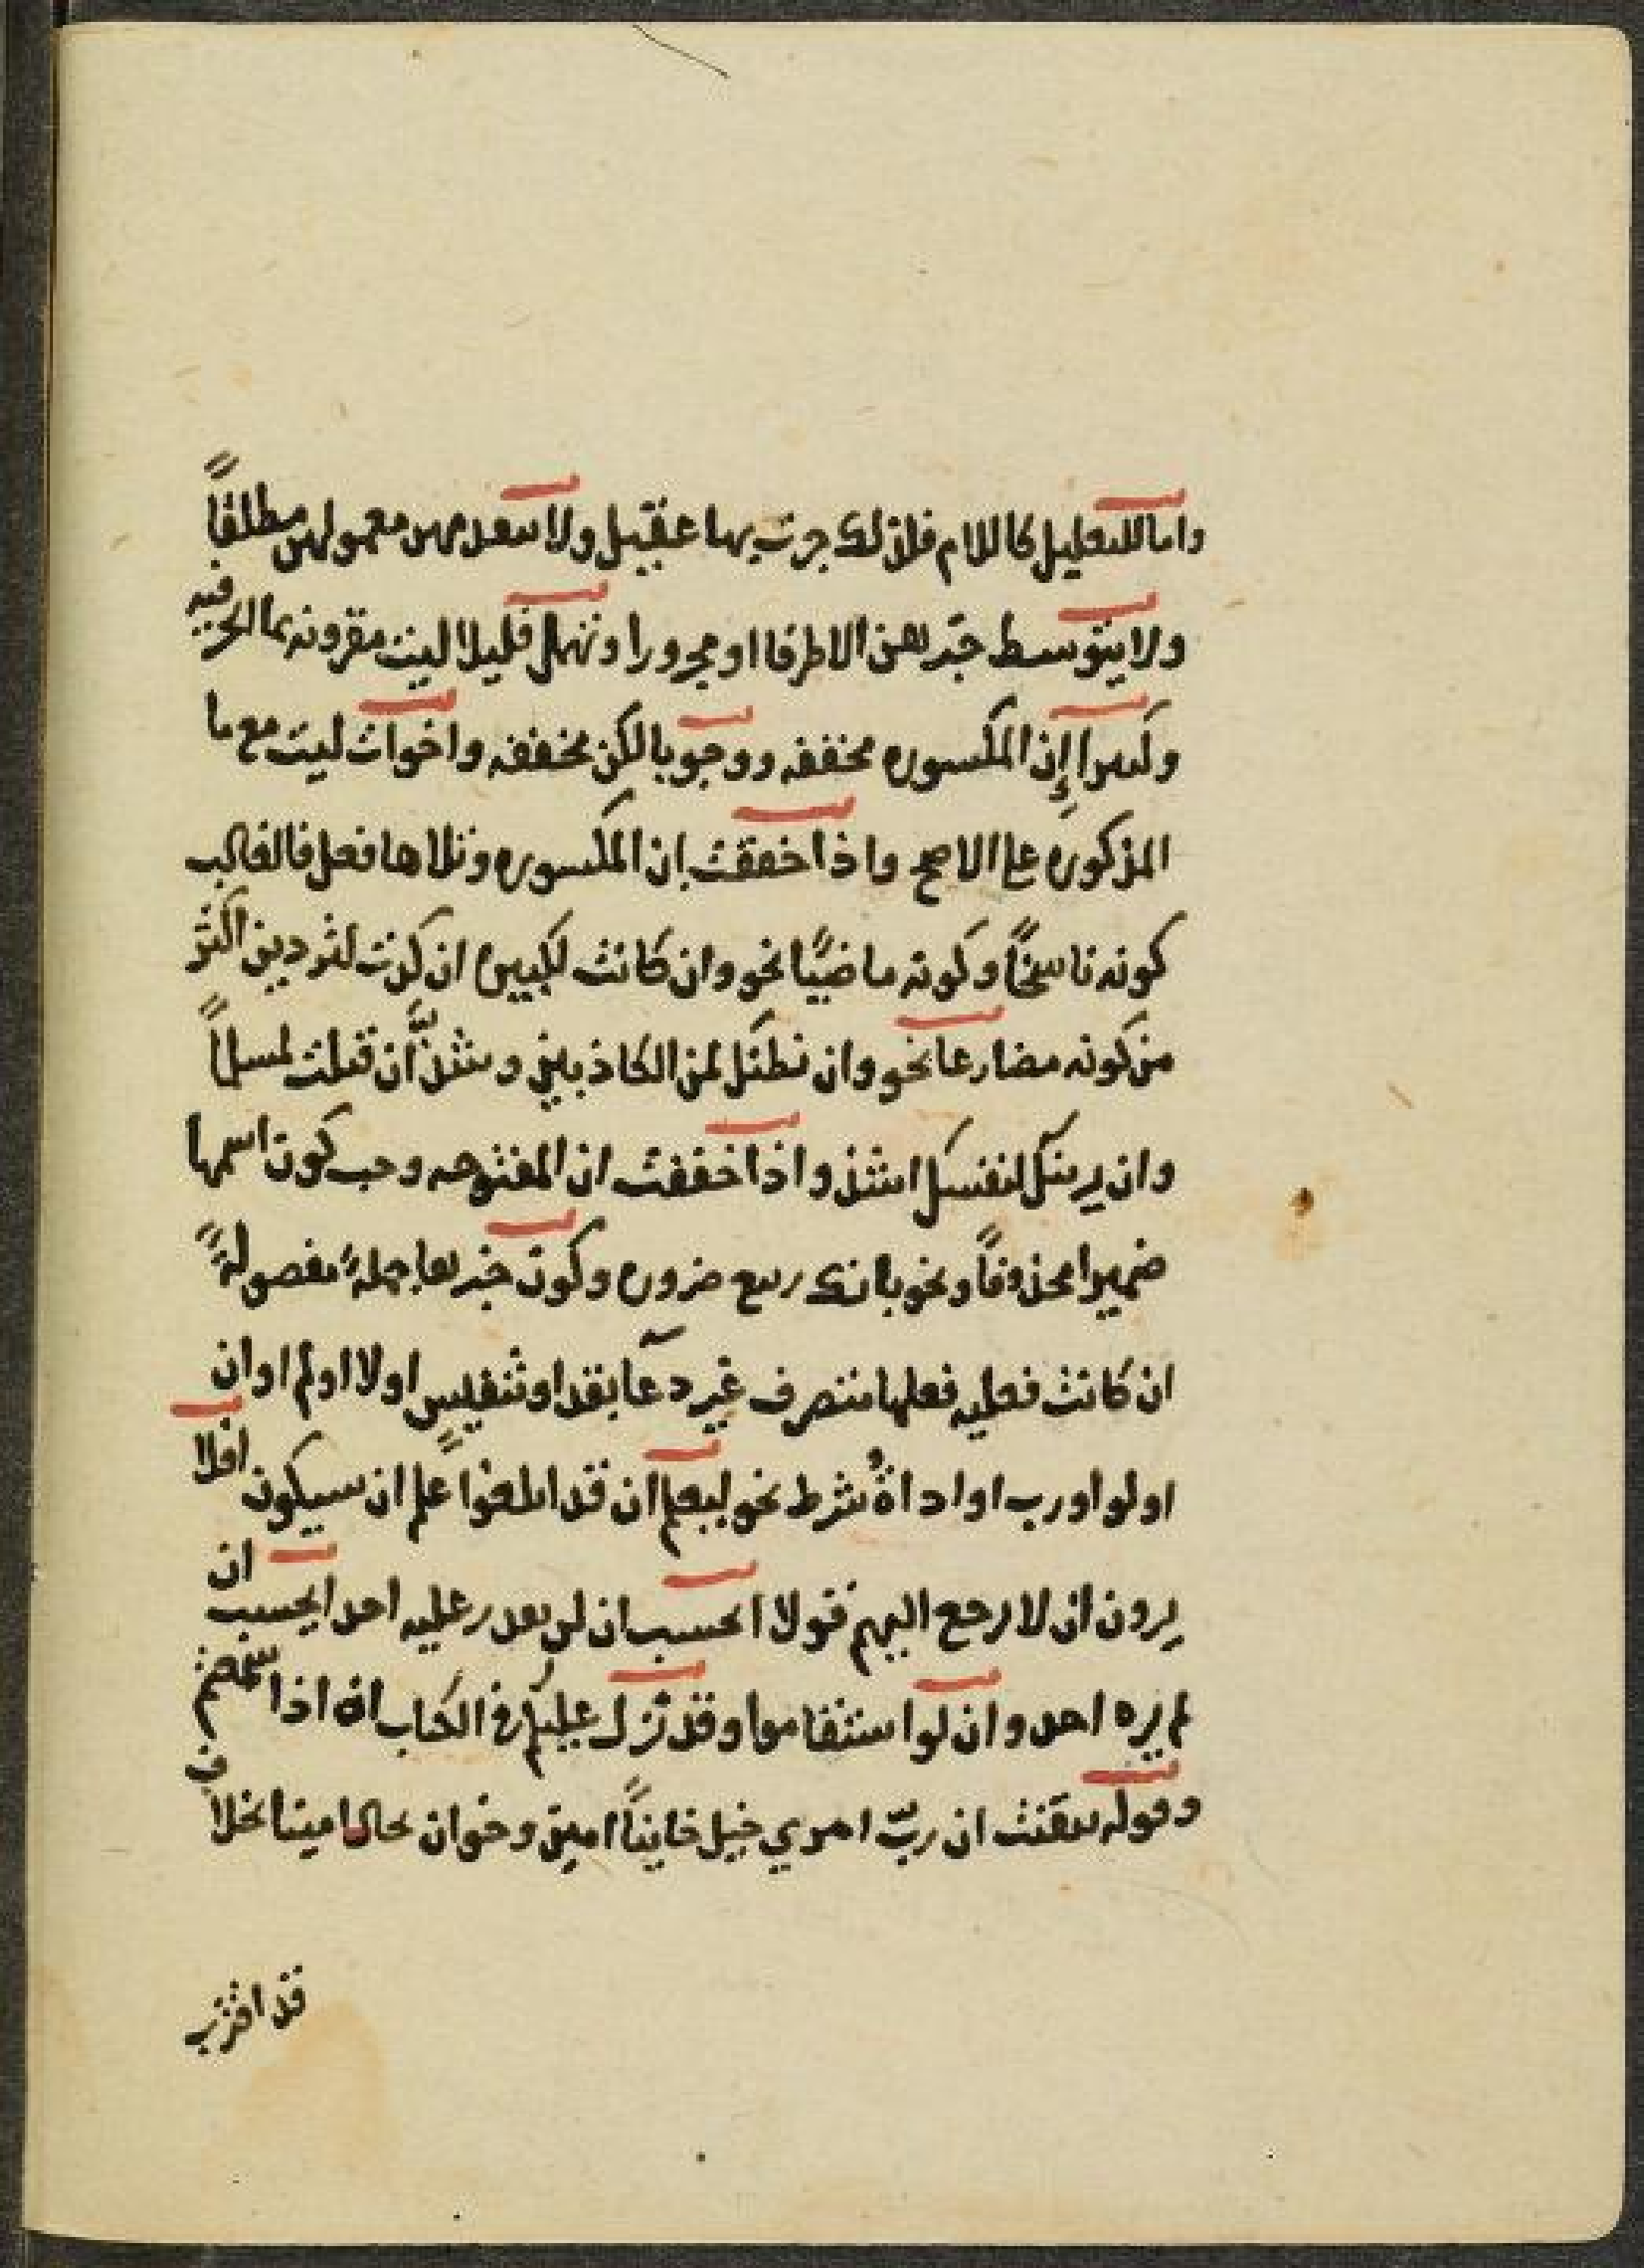 واما للتعليل كاللام فلذلك جرت بها عقيل ولا يتقدمهن معمولهن مطلقاً
ولا يتوسط خبرهن الا ظرفا او مجرورا وتهمل قليلا ليت مقرونه بما الحرفيه
وكثيرا إن المكسوره مخففه ووجوبا لكن مخففه واخوات ليت مع ما
المذكوره على الاصح واذا خففت إن المكسوره وتلاها فعل فالغالب
كونه ناسخاً وكونه ماضيًا نحو وان كانت لكبيرة ان كدت لتردين اكثر
من كونه مضارعا نحو وان نظنك لمن الكاذبين وشذّ ان قتلت لمسلماً
وان يزينك لنفسك اشذ واذا خففت ان المفتوحه وجب كون اسمها
ضميرا محذوفاً ونحو بانك ربيع ضروره وكون خبرها جملةً مفصولةً
ان كانت فعليه فعلها متصرف غير دعآ بقد او تنفيس او لا او لم او ان
او لو او رب او اداة شرط نحو ليعلم ان قد ابلغوا علم ان سيكون افلا
يرون ان لا رجع اليهم قولا ايحسب ان لن يقدر عليه احد ايحسب ان
لم يره احد وان لو استقاموا وقد نزل عليكم في الكتاب ان اذا سمعتم
وقوله تيقنت ان ربّ امرئ خيل خايناً امين وخوان يخال امينا نحلاف
قد اقترب